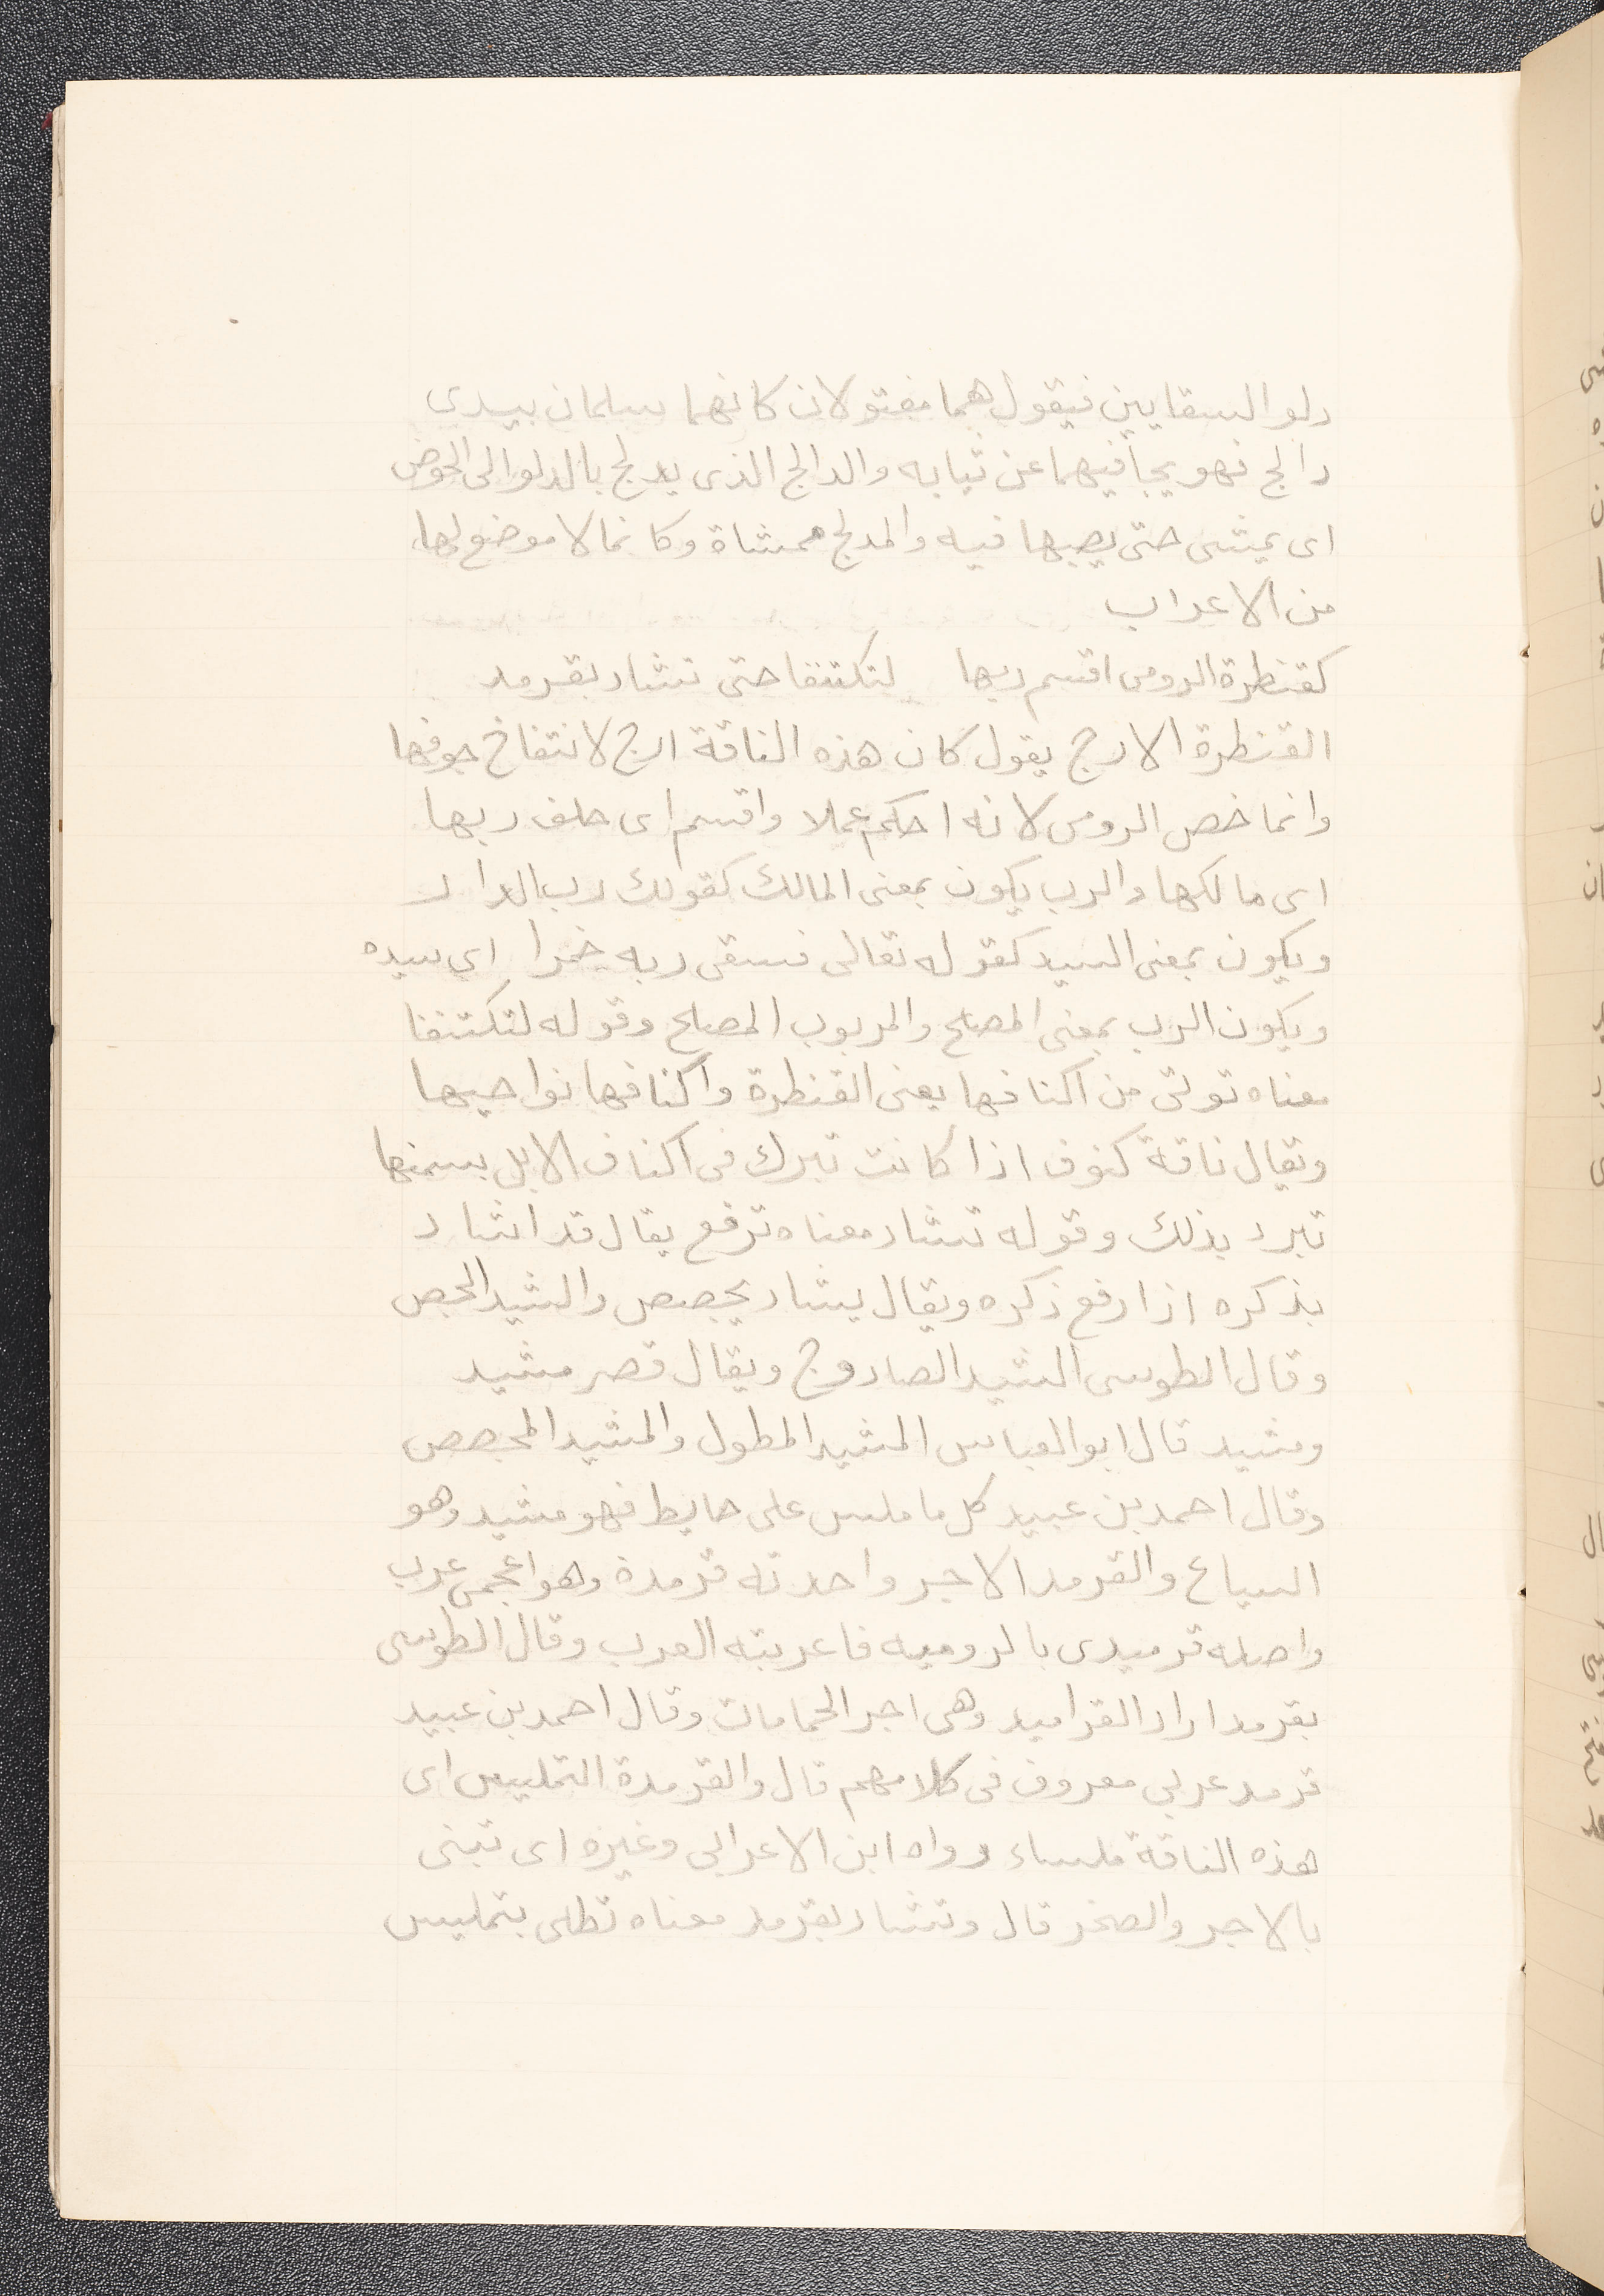 دلو السقايين فيقول هما مفتولان كانهما سلمان بيدى
دالج فهو يجافيهما عن ثيابه والدالج الذى يدلج بالدلو الى الحوض
اى يمشى حتى يصبها فيه والمدلج ممشاة وكانما لا موضع لها
من الاعراب
كقنطرة الرومى اقسم ربها لتكتنفا حتى تشاد بقرمد
القنطرة الازج يقول كان هذه الناقة ازج لانتفاخ جوفها
وانما خص الرومى لانه احكم عملا واقسم اى حلف ربها
اى مالكها والرب يكون بمعنى المالك كقولك رب الدار
ويكون بمعنى السيد كقوله تعالى فسقى ربه خمرا اى سيده
ويكون الرب بمعنى المصلح والمربوب المصلح وقوله لتكتنفا
معناه توتى من اكنافها يعنى القنطرة واكنافها نواحيها
ويقال ناقة كنوف اذا كانت تبرك فى اكناف الابل بسمنها
تبرد بذلك وقوله تشاد معناه ترفع يقال قد اشاد
بذكره اذا رفع ذكره ويقال يشاد يجصص والشيد الجص
وقال الطوسى الشيد الصاروج ويقال قصر مشيد
ومشيد قال ابو العباس المشيد المطول والمشيد المجصص
وقال احمد بن عبيد كل ما ملس على حايط فهو مشيد وهو
السياع والقرمد الاجر واحدته قرمدة وهو اعجمى عرب
واصله قرميدى بالروميه فاعربته العرب وقال الطوسى
بقرمد اراد القراميد وهى اجر الحمامات وقال احمد بن عبيد
قرمد عربى معروف فى كلامهم قال والقرمدة التمليس اى
هذه الناقة ملساء رواه ابن الاعرابى وغيره اى تبنى
بالاجر والصخر قال وتشاد بقرمد معناه تطلى بتمليس